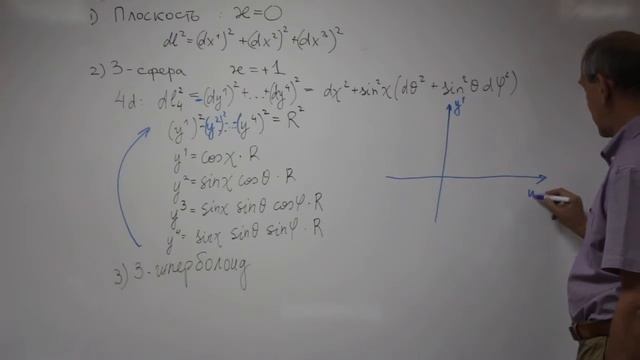 1) Плоскость : ϰ=0
dl² = (dx¹)² + (dx²)² + (dx³)²
2) 3-сфера ϰ=+1
4d: dl₄² = (dy¹)² + ... + (dy⁴)² = dχ² + sin²χ (dθ² + sin²θ dφ²)
(y¹)² - (y²)² ... - (y⁴)² = R²
y¹ = cosχ · R
y² = sinχ cosθ · R
y³ = sinχ sinθ cosφ · R
y⁴ = sinχ sinθ sinφ · R
3) 3-гиперболоид
y¹